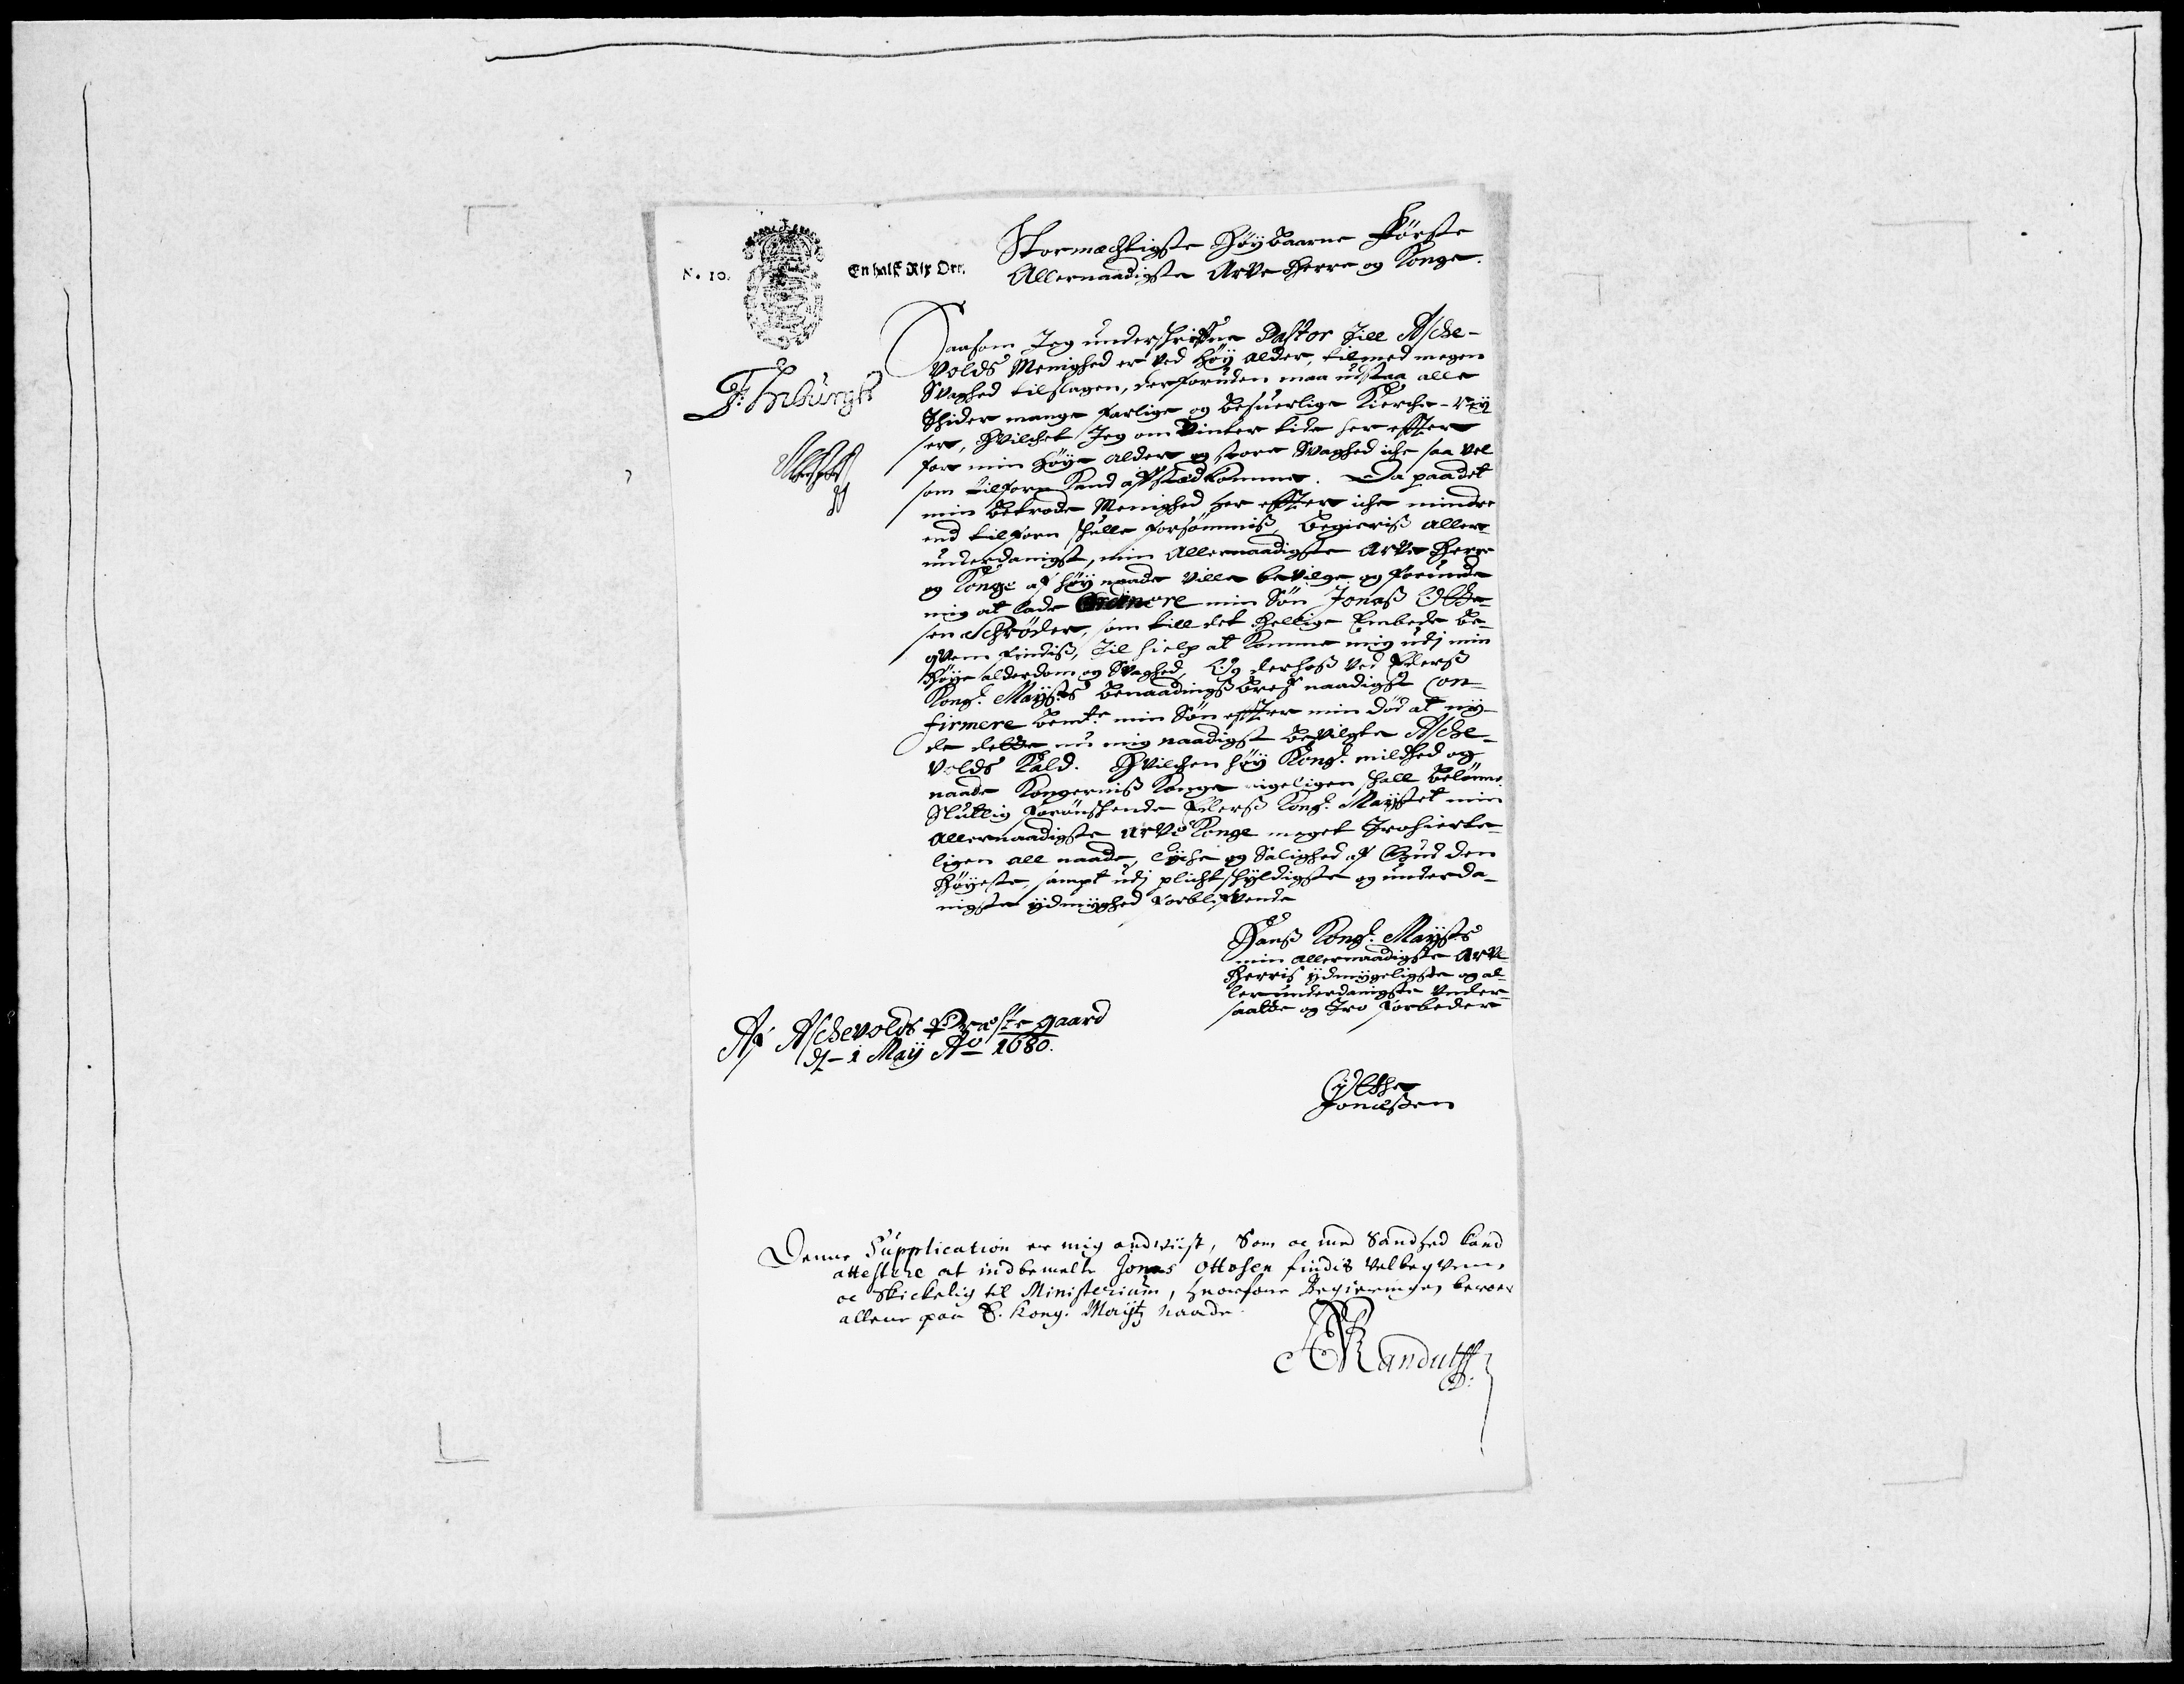 No. 10.
En halff Rix Ort.
Stormechtigste Höybaarne Förste
Allernaadigste Arve Herre og Konge.
Saasom Jeg underschrefne Pastor till Asche-
volds Menighed er ved höy alder, tilmed megen
Svaghed tilslagen, der foruden maa udstaa alle
tider mange farlige og besuerlige Kierche-rey-
ser, Hvilchet Jeg om Vinter tide her effter
for min höye alder og store Svaghed iche saa vel
som tilforn kand afstedkomme. Da paa det
min betrode Menighed her effter iche mindre
end tilforn skulle forsömmiß, begieriß aller-
underdanigst, min Allernaadigste Arve Herre
og Konge af höy naade ville bevilge og forunde
mig at lade Ordinere min Sön Jonaß Otte-
sen Schröder, som till det Hellige Embede be-
qvem findiß, til hielp at komme mig udj min
Höye alderdom og Svaghed, Og derhoß ved Eders
Kongl. Mayts benaadingsbref naadigst Con-
firmere bemte min Sön effter min död at ny-
de dette nu mig naadigst bevilgte Asche-
volds Kald. Hvilchen höy Kongl. mildhed og
naade Kongerniß Konge rigeligen skall belönne.
Sluttlig forönschende Eders Kongl. Maystet min
Allernaadigste Arve Konge meget Trohierte-
ligen all naade, lyche og Salighed af Gud den
Höyeste, sampt udj plichtskyldigste og underda-
nigste ydmyghed forblifvende
Hanß Kongl. Maysts
min allernaadigste Arve
Herris ydmygeligste og al-
lerunderdanigste under-
saatte og Tro forbeder
Af Aschevolds Præste gaard
d. 1 May Ao 1680.
Otthe
Jonæßen
Denne Supplication er mig andviist, Som oc med Sandhed kand
attestere at indbemelte Jonas Ottosen findis velbeqvem,
oc skickelig til Ministerium, hvorfore Begieringen beroer
allene paa E. Kong. Mayts Naade.
Randulff
D: